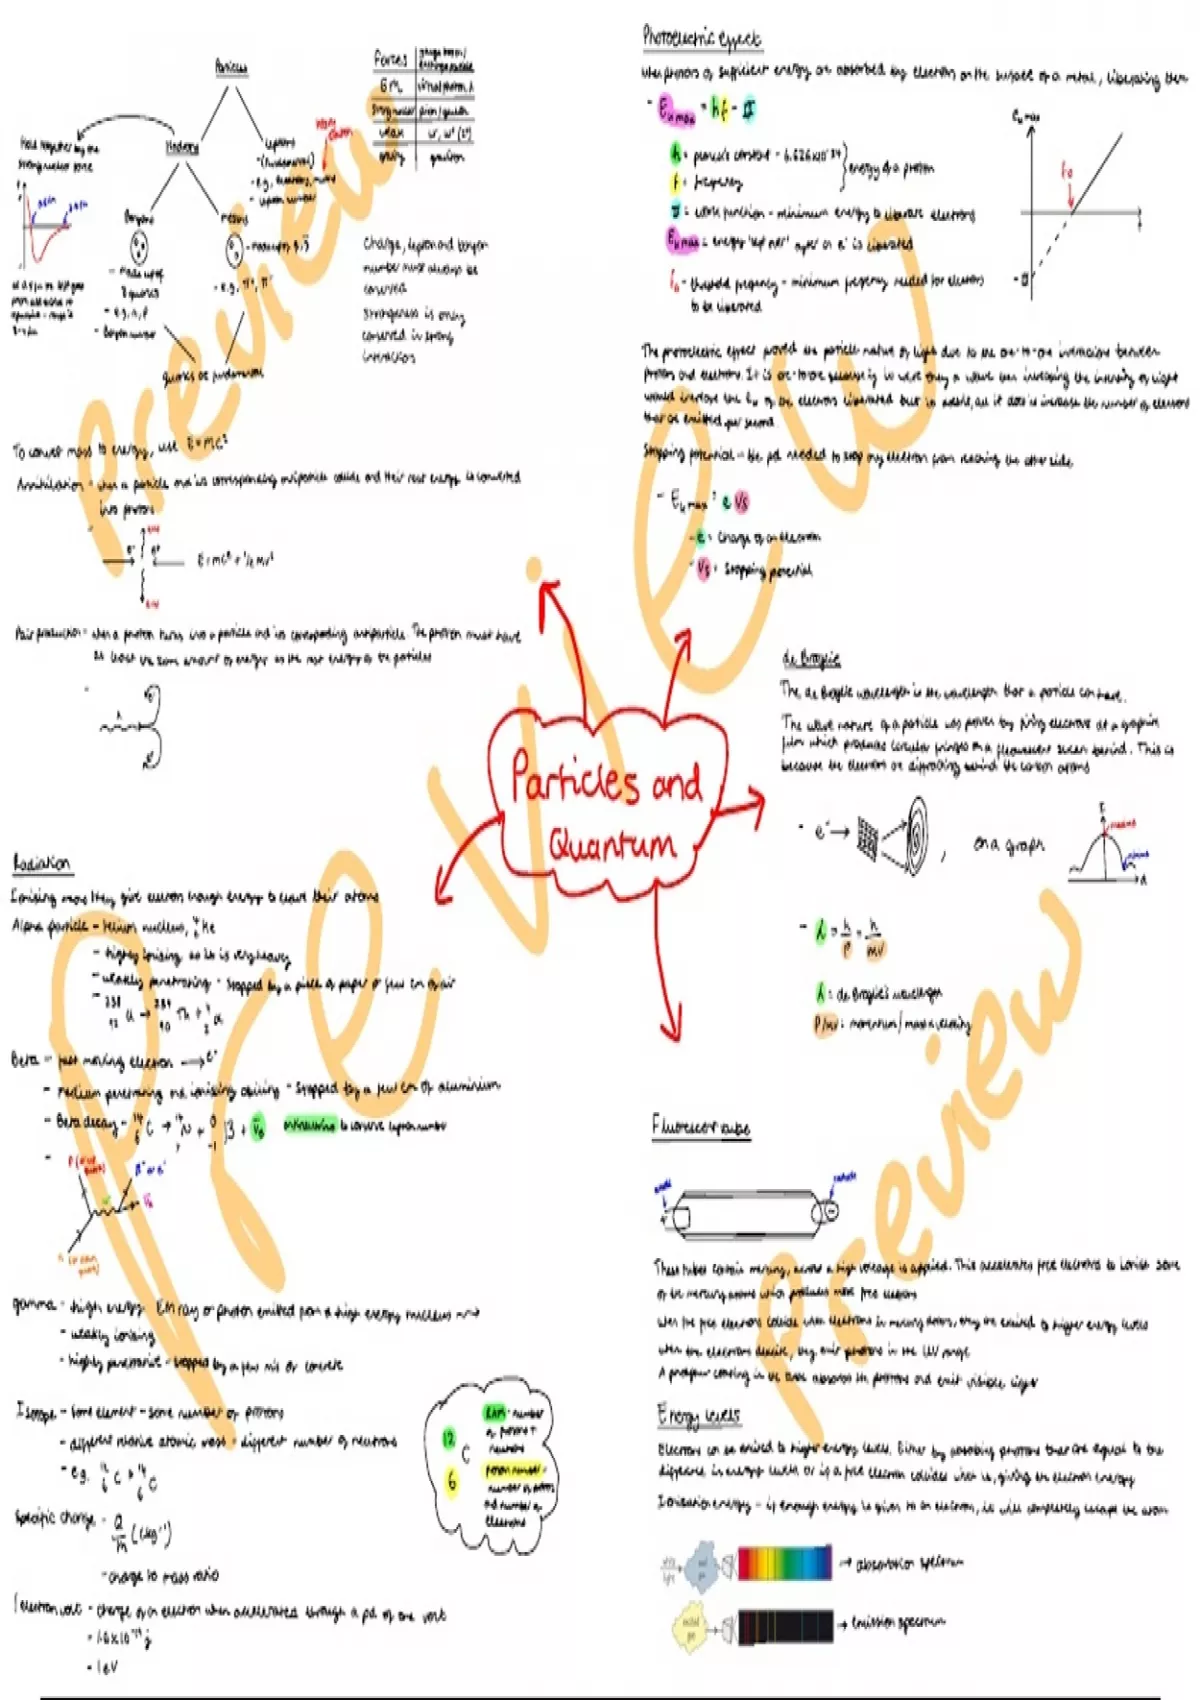 Particles
Forces | gauge boson/
exchange particle
EM | virtual photon
strong nuclear | pion/gluon
weak | W⁻, W⁺ (Z⁰)
gravity | graviton
Held together by the
strong nuclear force
Hadrons
Leptons
- (fundamental)
- e.g., electrons, muons
- lepton number
Baryons
- made up of
3 quarks
- e.g. n, p
- Baryon number
mesons
- made up q, q̄
- e.g. π⁺, π⁻
quarks are fundamental
Charge, lepton and baryon
number must always be
conserved
Strangeness is only
conserved in strong
interactions
To convert mass to energy, use E=mc²
Annihilation - when a particle and its corresponding antiparticle collide and their rest energy is converted
into photons
e⁻ e⁺
E=mc² + ½mv²
Pair production - when a photon turns into a particle and its corresponding antiparticle. The photon must have
at least the same amount of energy as the rest energy of the particles
Particles and
Quantum
Radiation
Ionising means they give electron enough energy to leave their atoms
Alpha particle - helium nucleus, ⁴₂He
- highly ionising as it is very heavy
- weakly penetrating - stopped by a piece of paper or few cm of air
- ²³⁸₉₂U → ²³⁴₉₀Th + ⁴₂α
Beta - fast moving electron → e⁻
- medium penetrating and ionising ability - stopped by a few cm of aluminium
- Beta decay - ¹⁴₆C → ¹⁴₇N + ⁰₋₁β + ν̄e antineutrino to conserve lepton number
gamma - high energy EM ray or photon emitted from a high energy nucleus
- weakly ionising
- highly penetrative - stopped by a few m's of concrete
Isotope - same element - same number of protons
- different relative atomic mass - different number of neutrons
- e.g. ¹²₆C + ¹⁴₆C
12
6
C
RAM - number
of protons +
neutrons
proton number -
number of protons
and number of
electrons
Specific charge - Q/m (Ckg⁻¹)
- charge to mass ratio
1 electron volt - charge of an electron when accelerated through a pd of one volt
- 1.6x10⁻¹⁹ j
- 1eV
Photoelectric effect
When photons of sufficient energy are absorbed by electrons on the surface of a metal, liberating them
- Ek max = hf - Φ
h = planck's constant - 6.626x10⁻³⁴
f = frequency
} energy of a photon
Φ = work function - minimum energy to liberate electrons
Ek max = energy 'left over' after an e⁻ is liberated
f₀ - threshold frequency - minimum frequency needed for electrons
to be liberated
Ek max
f₀
-Φ
The photoelectric effect proved the particle nature of light due to the one-to-one interactions between
photons and electrons. It is one-to-one because if it were a wave then increasing the intensity of light
would increase the Ek of the electrons liberated but in reality, all it does is increase the number of electrons
that are emitted per second.
Stopping potential - the pd needed to stop any electron from reaching the other side
- Ek max = e Vs
- e = Charge of an electron
- Vs = Stopping potential
de Broglie
The de Broglie wavelength is the wavelength that a particle can have.
The wave nature of a particle was proven by firing electrons at a graphite
film which produces circular fringes on a fluorescent screen behind. This is
because the electrons are diffracting behind the carbon atoms
- e⁻ → , on a graph
- λ = h/p = h/mv
λ = de Broglie's wavelength
p/mv = momentum/mass x velocity
Fluorescent tube
anode
cathode
These tubes contain mercury, across a high voltage is applied. This accelerates free electrons to ionise some
of the mercury atoms which produces more free electrons
When the free electrons collide with electrons in mercury atoms, they are excited to higher energy levels
when the electrons deexcite, they emit photons in the UV range
A phosphor coating in the tube absorbs the photons and emit visible light
Energy levels
Electrons can be excited to higher energy levels. Either by absorbing photons that are equal to the
difference in energy levels or is a free electron collides with it, giving the electron energy
Ionisation energy - if enough energy is given to an electron, it will completely escape the atom
→ absorption spectrum
→ Emission spectrum
Preview
Preview
Preview
Preview